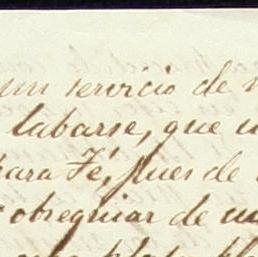 un servicio de
labarse, que
para Té, pues de
obsequiar de un
plata